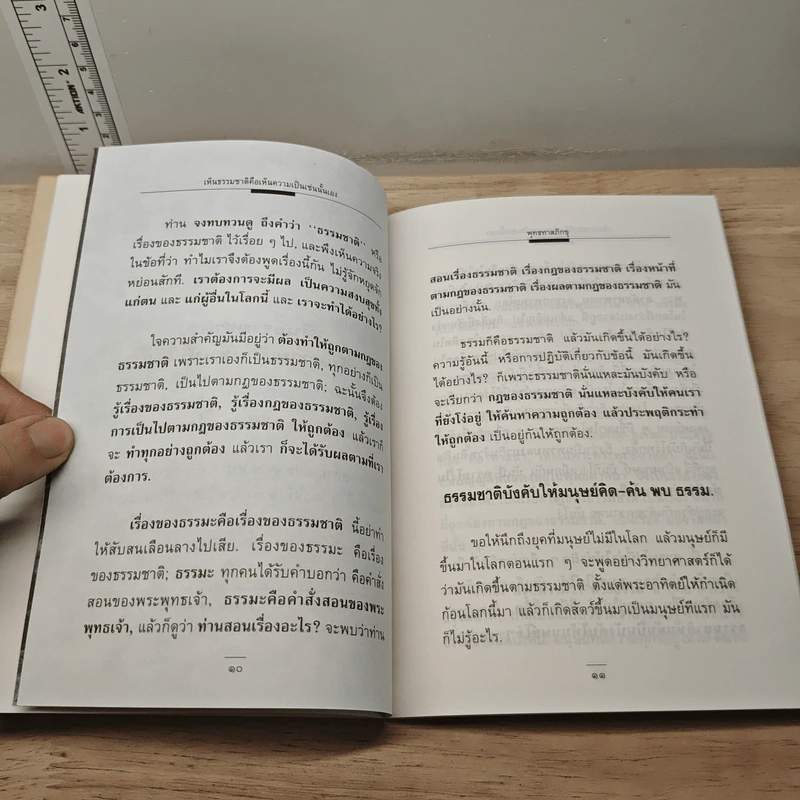 3
2
1
ACTION
เห็นธรรมชาติคือเห็นความเป็นเช่นนั้นเอง
ท่าน จงทบทวนดู ถึงคำว่า "ธรรมชาติ" หรือ
เรื่องของธรรมชาติ ไว้เรื่อย ๆ ไป, และพึงเห็นความจริง
ในข้อที่ว่า ทำไมเราจึงต้องพูดเรื่องนี้กัน ไม่รู้จักหยุดจัก
หย่อนสักที. เราต้องการจะมีผล เป็นความสงบสุขทั้ง
แก่ตน และ แก่ผู้อื่นในโลกนี้ และ เราจะทำได้อย่างไร?
ใจความสำคัญมันมีอยู่ว่า ต้องทำให้ถูกตามกฎของ
ธรรมชาติ เพราะเราเองก็เป็นธรรมชาติ, ทุกอย่างก็เป็น
ธรรมชาติ, เป็นไปตามกฎของธรรมชาติ; ฉะนั้นจึงต้อง
รู้เรื่องของธรรมชาติ, รู้เรื่องกฎของธรรมชาติ, รู้เรื่อง
การเป็นไปตามกฎของธรรมชาติ ให้ถูกต้อง แล้วเราก็
จะ ทำทุกอย่างถูกต้อง แล้วเรา ก็จะได้รับผลตามที่เรา
ต้องการ.
เรื่องของธรรมะคือเรื่องของธรรมชาติ นี้อย่าทำ
ให้สับสนเลือนลางไปเสีย. เรื่องของธรรมะ คือเรื่อง
ของธรรมชาติ; ธรรมะ ทุกคนได้รับคำบอกว่า คือคำสั่ง
สอนของพระพุทธเจ้า, ธรรมะคือคำสั่งสอนของพระ
พุทธเจ้า, แล้วก็ดูว่า ท่านสอนเรื่องอะไร? จะพบว่าท่าน
๑๐
พุทธทาสภิกขุ
สอนเรื่องธรรมชาติ เรื่องกฎของธรรมชาติ เรื่องหน้าที่
ตามกฎของธรรมชาติ เรื่องผลตามกฎของธรรมชาติ มัน
เป็นอย่างนั้น.
ธรรมก็คือธรรมชาติ แล้วมันเกิดขึ้นได้อย่างไร?
ความรู้อันนี้ หรือการปฏิบัติเกี่ยวกับข้อนี้ มันเกิดขึ้น
ได้อย่างไร? ก็เพราะธรรมชาตินั่นแหละมันบังคับ หรือ
จะเรียกว่า กฎของธรรมชาติ นั่นแหละบังคับให้คนเรา
ที่ยังโง่อยู่ ให้ค้นหาความถูกต้อง แล้วประพฤติกระทำ
ให้ถูกต้อง เป็นอยู่กันให้ถูกต้อง.
ธรรมชาติบังคับให้มนุษย์คิด-ค้น พบ ธรรม.
ขอให้นึกถึงยุคที่มนุษย์ไม่มีในโลก แล้วมนุษย์ก็มี
ขึ้นมาในโลกตอนแรก ๆ จะพูดอย่างวิทยาศาสตร์ก็ได้
ว่ามันเกิดขึ้นตามธรรมชาติ ตั้งแต่พระอาทิตย์ให้กำเนิด
ก้อนโลกนี้มา แล้วก็เกิดสัตว์ขึ้นมาเป็นมนุษย์ทีแรก มัน
ก็ไม่รู้อะไร.
๑๑